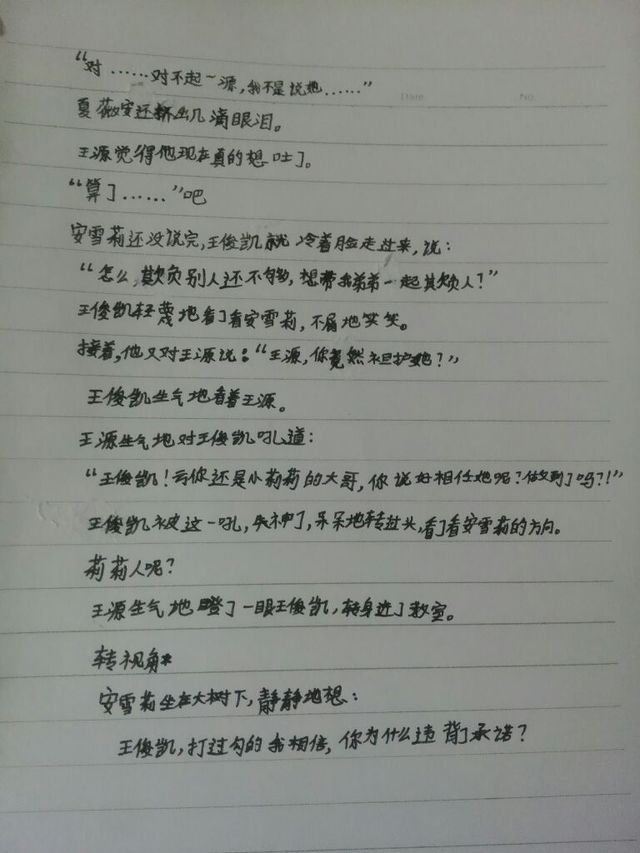 “对……对不起~源，我不是说她……”
Date.
NO.
夏薇安还挤出几滴眼泪。
王源觉得他现在真的想吐了。
“算了……”吧
安雪莉还没说完，王俊凯就冷着脸走过来，说：
“怎么，欺负别人还不够，想带我弟弟一起其负人？”
王俊凯轻蔑地看了看安雪莉，不屑地笑笑。
接着，他又对王源说：“王源，你竟然袒护她？”
王俊凯生气地看着王源。
王源生气地对王俊凯吼道：
“王俊凯！亏你还是小莉莉的大哥，你说好相任她呢？做到了吗？！”
王俊凯被这一吼，失神了，呆呆地转过头，看了看安雪莉的方向。
莉莉人呢？
王源生气地瞪了一眼王俊凯，转身进了教室。
转视角*
安雪莉坐在大树下，静静地想：
王俊凯，打过勾的我相信，你为什么违背了承诺？